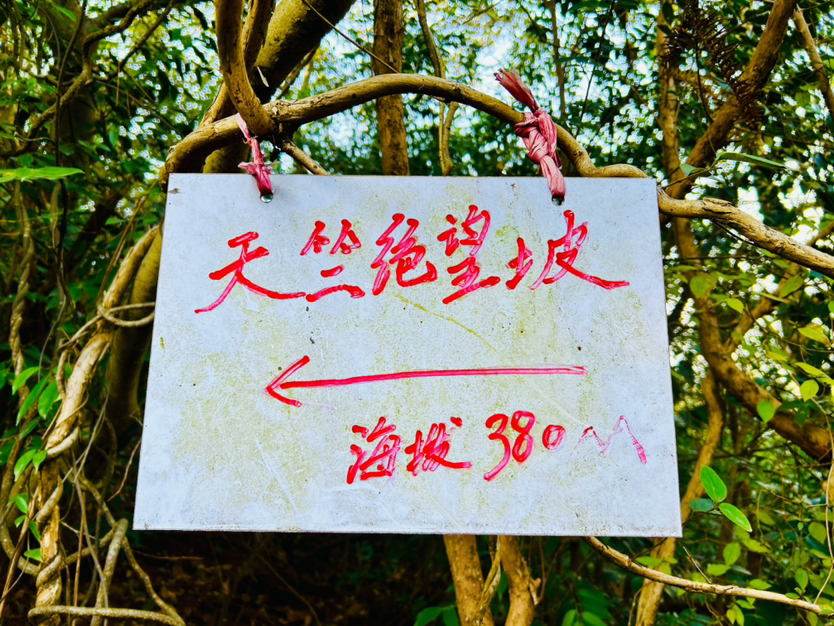 天竺绝望坡
海拔380M